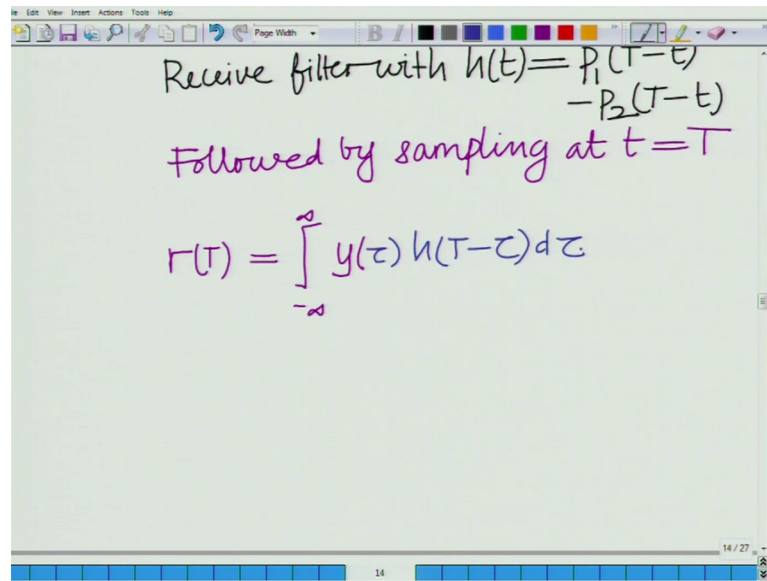 File Edit View Insert Actions Tools Help
Page Width
B I
Receive filter with h(t) = P₁(T−t)
−P₂(T−t)
Followed by sampling at t=T
r(T) = ∫_{-∞}^{∞} y(τ) h(T−τ) dτ.
14 / 27
14